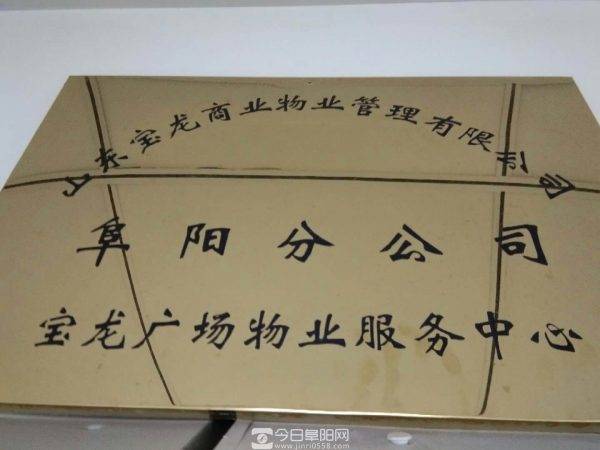 山东宝龙商业物业管理有限公司
阜阳分公司
宝龙广场物业服务中心
今日阜阳网
www.jinri0558.com